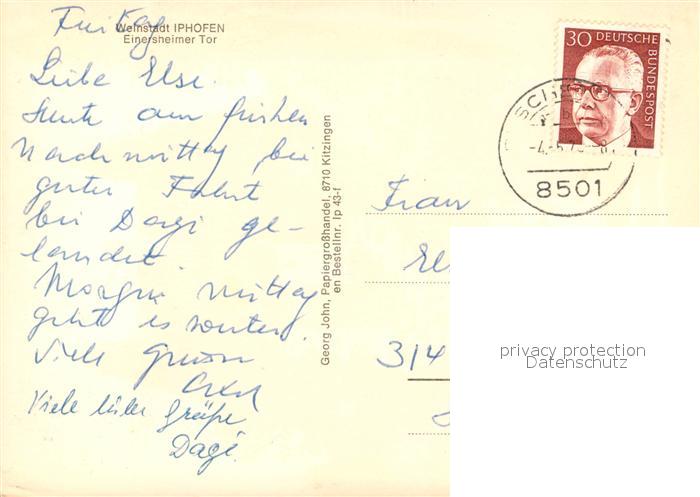 Weinstadt IPHOFEN
Einersheimer Tor
Freitag
Liebe Else.
Heute am frühen
Nachmittag bei
guter Fahrt
bei Dagi ge-
landet.
Morgen mittag
geht es weiter.
Viele Grüsse
Viele liebe Grüße
Dagi.
Georg John, Papiergroßhandel, 8710 Kitzingen
en Bestellnr. Ip 43-f
30 DEUTSCHE BUNDESPOST
8501
Frau
314
privacy protection
Datenschutz